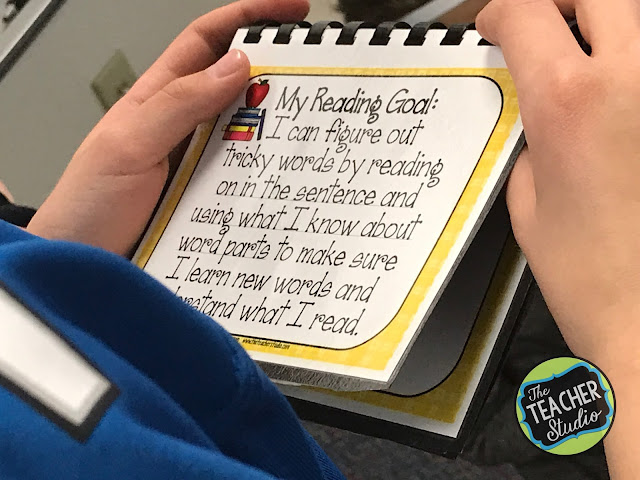 My Reading Goal:
I can figure out
tricky words by reading
on in the sentence and
using what I know about
word parts to make sure
I learn new words and
rstand what I read.
www.theteacherstudio.com
The
TEACHER
Studio